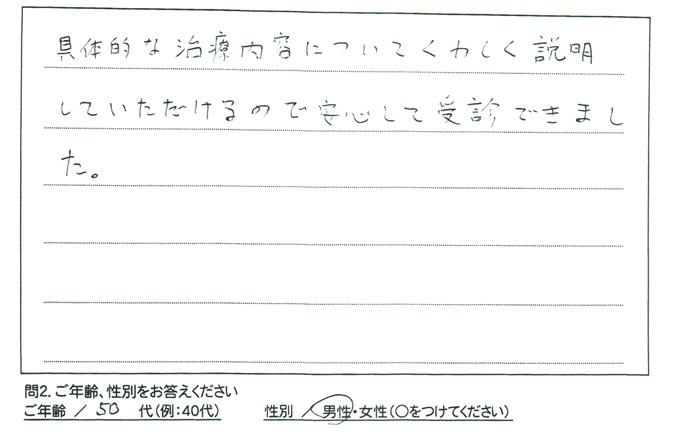 具体的な治療内容についてくわしく説明
していただけるので安心して受診できまし
た。
問2.ご年齢、性別をお答えください
ご年齢 / 50 代(例:40代) 性別 / 男性・女性(○をつけてください)